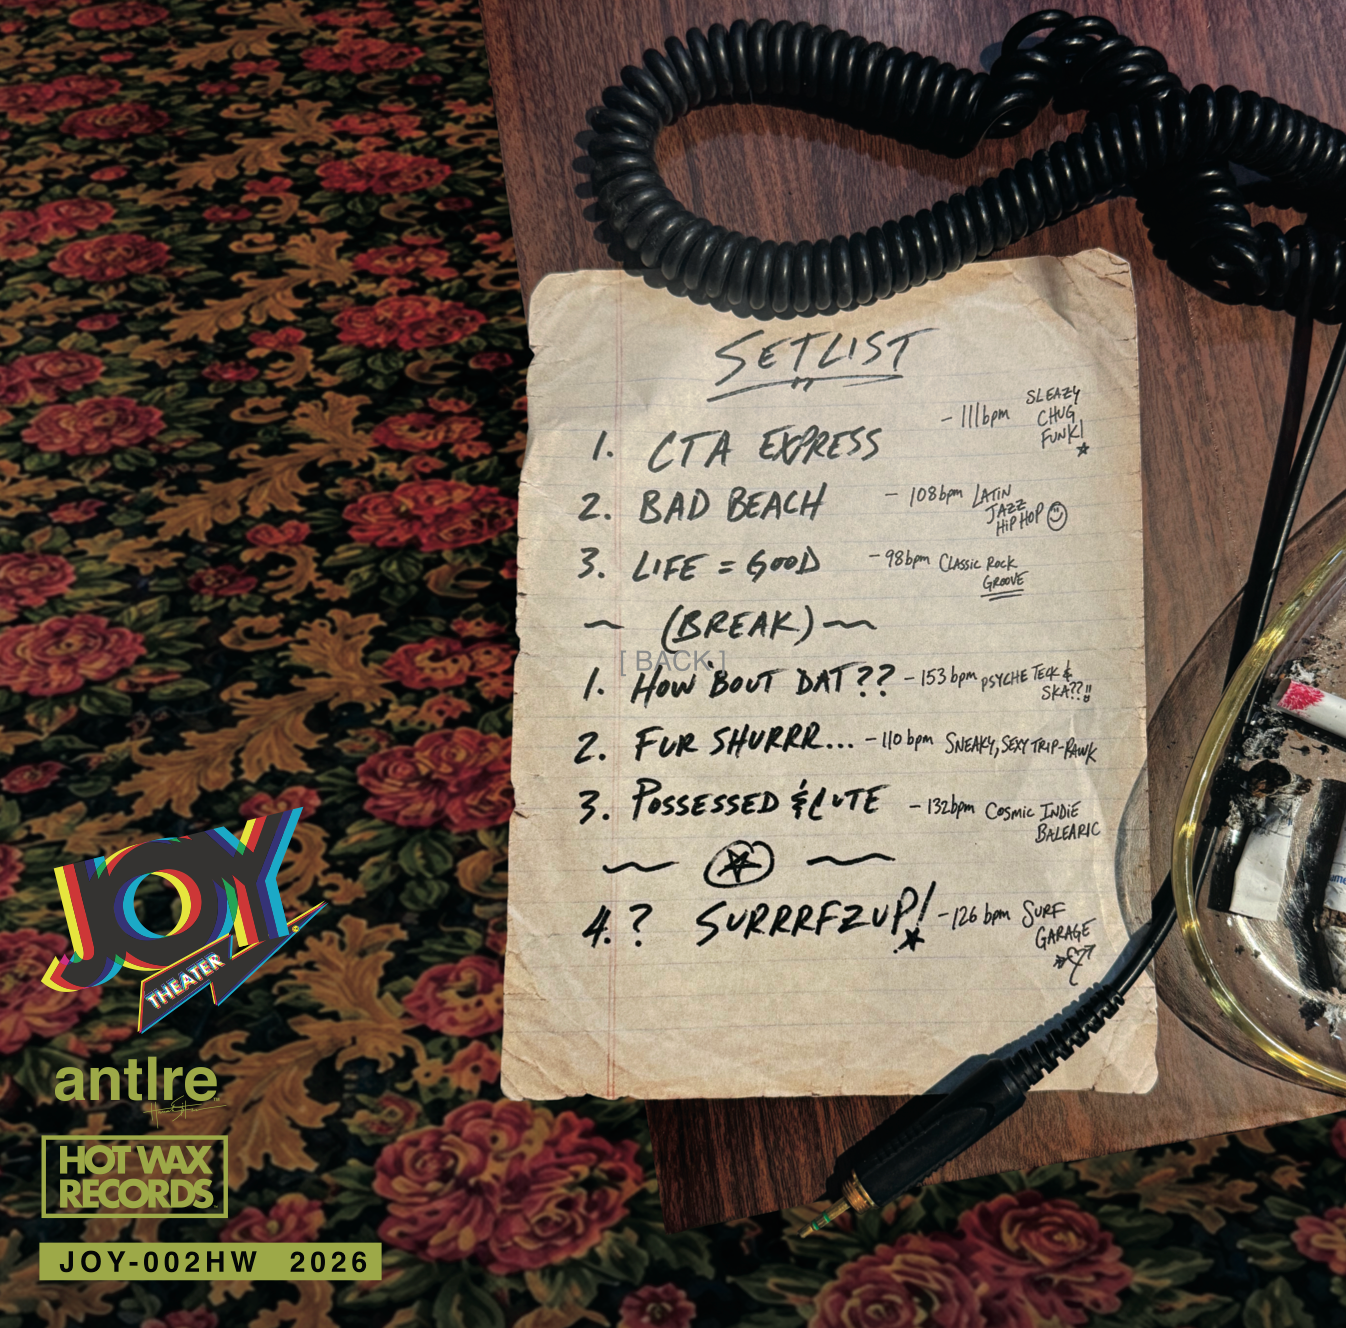 SETLIST
1. CTA EXPRESS - 111bpm SLEAZY CHUG FUNK!
2. BAD BEACH - 108bpm LATIN JAZZ HIP HOP
3. LIFE = GOOD - 98bpm CLASSIC ROCK GROOVE
~ (BREAK) ~
[ BACK ]
1. HOW 'BOUT DAT?? - 153bpm PSYCHE TECK & SKA??!!
2. FUR SHURRR... - 110bpm SNEAKY, SEXY TRIP-RAWK
3. POSSESSED & CUTE - 132bpm COSMIC INDIE BALEARIC
4.? SURRRFZUP! - 126bpm SURF GARAGE
JOY
THEATER
antIre
HOT WAX
RECORDS
JOY-002HW 2026